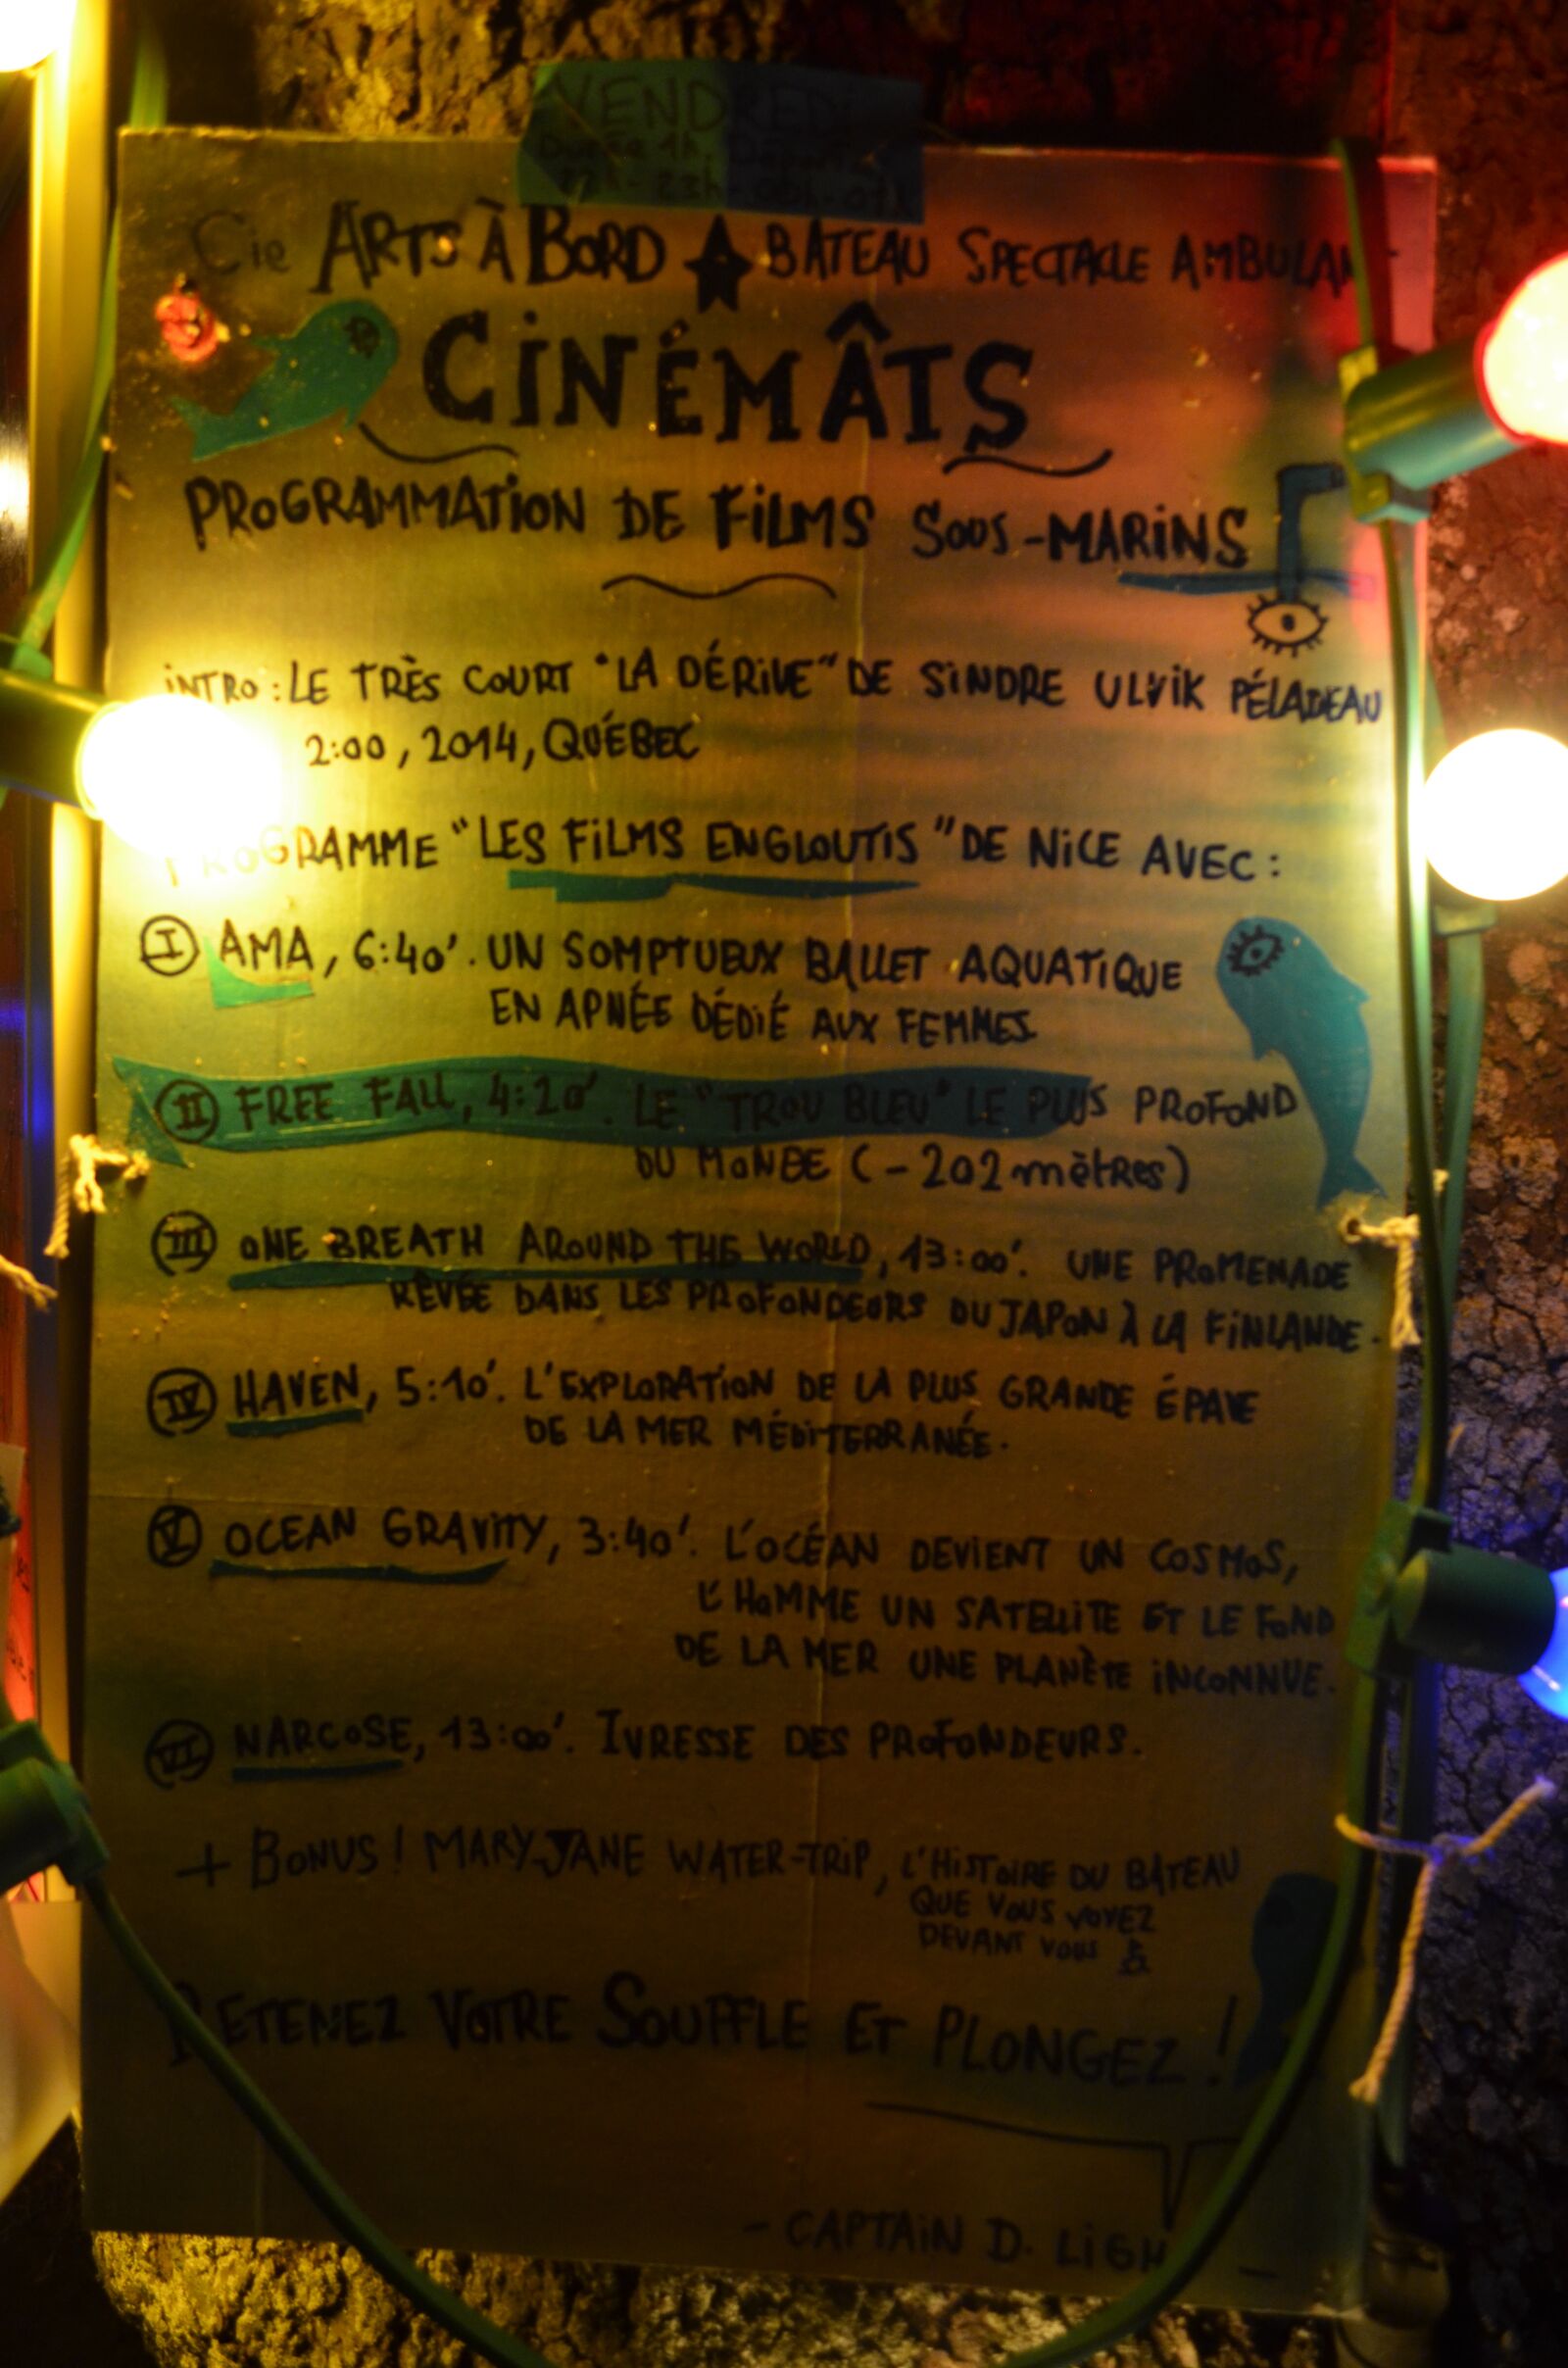 VENDREDI
Durée 1h Départs
22h - 23h - 00h - 01h
Cie ARTS À BORD ★ BATEAU SPECTACLE AMBULANT
CINÉMÂTS
PROGRAMMATION DE FILMS SOUS-MARINS
INTRO : LE TRÈS COURT "LA DÉRIVE" DE SINDRE ULVIK PÉLADEAU
2:00, 2014, QUÉBEC
PROGRAMME "LES FILMS ENGLOUTIS" DE NICE AVEC :
I AMA, 6:40'. UN SOMPTUEUX BALLET AQUATIQUE
EN APNÉE DÉDIÉ AUX FEMMES.
II FREE FALL, 4:20'. LE "TROU BLEU" LE PLUS PROFOND
DU MONDE (-202 mètres)
III ONE BREATH AROUND THE WORLD, 13:00'. UNE PROMENADE
RÊVÉE DANS LES PROFONDEURS DU JAPON À LA FINLANDE.
IV HAVEN, 5:10'. L'EXPLORATION DE LA PLUS GRANDE ÉPAVE
DE LA MER MÉDITERRANÉE.
V OCEAN GRAVITY, 3:40'. L'OCÉAN DEVIENT UN COSMOS,
L'HOMME UN SATELLITE ET LE FOND
DE LA MER UNE PLANÈTE INCONNUE.
VI NARCOSE, 13:00'. IVRESSE DES PROFONDEURS.
+ BONUS ! MARY-JANE WATER-TRIP, L'HISTOIRE DU BATEAU
QUE VOUS VOYEZ
DEVANT VOUS
RETENEZ VOTRE SOUFFLE ET PLONGEZ !
- CAPTAIN D. LIGH -